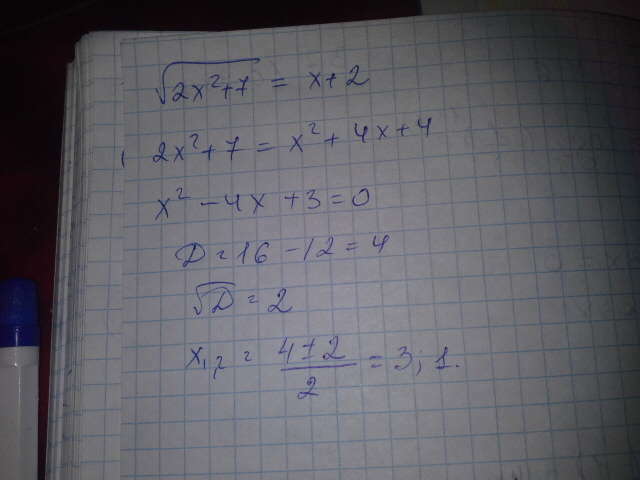 √(2x²+7) = x+2
2x²+7 = x²+4x+4
x²-4x+3=0
D=16-12=4
√D=2
x₁,₂ = (4±2)/2 = 3; 1.